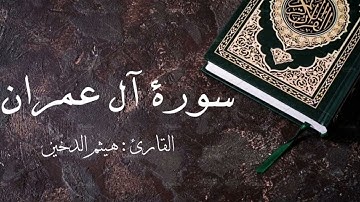 سورة آل عمران
القارئ : هيثم الدخين